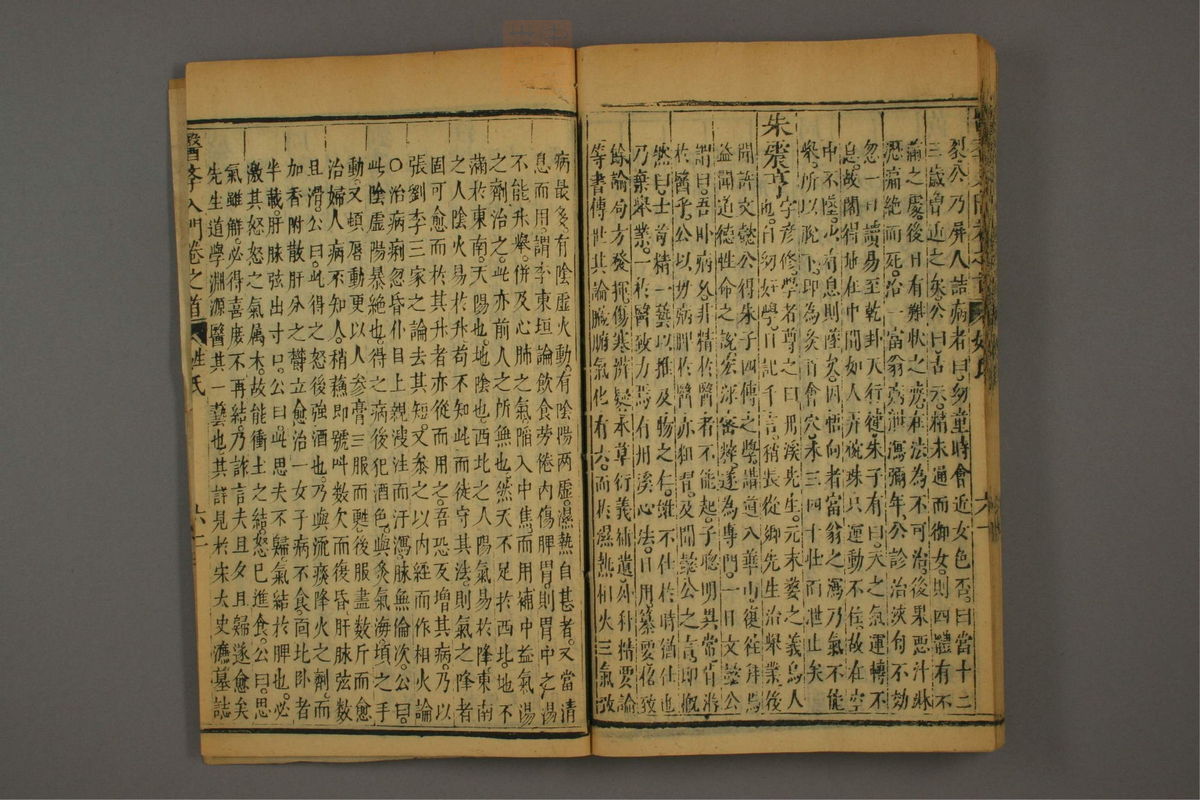 裂公乃屏人詰病者曰幼童時曾近女色否曰當十二
三歲曾近之矣公曰古云精未通而御女則四體有不
滿之處後日有難狀之疾在法為不可治後果惡汗淋
瀝痛絕而死治一富翁病泄瀉彌年公診治浹旬不効
忽一日讀易至乾卦天行健朱子有曰天之氣運轉不
息故閣得地在中間如人弄椀珠只運動不住故在空
中不墜少有息則墜矣因悟向者富翁之瀉乃氣不能
舉所以脫下即為灸百會穴未三四十壯而泄止矣
朱彥修字彥修學者尊之曰丹溪先生元末婺之義烏人
也自幼好學日記千言稍長從鄉先生治舉業後
聞許文懿公得朱子四傳之學講道八華山復往拜焉
益聞道德性命之說宏深密粹遂為專門一日文懿公
謂曰吾卧病久非精於醫者不能起子聰明異常肯游
於醫乎公以母病脾於醫亦粗習及聞懿公之言即慨
然曰士苟精一藝以推及物之仁雖不仕於時猶仕也
乃棄舉業一於醫致力焉有丹溪心法日用纂要格致
餘論局方發揮傷寒辨疑本草衍義補遺外科精要論
等書傳世其論臟腑氣化有六而於濕熱相火三氣致
病最多有陰虛火動有陰陽兩虛濕熱自甚者又當清
息而用謂李東垣論飲食勞倦內傷脾胃則胃中之陽
不能升舉併及心肺之氣陷入中焦而用補中益氣湯
之劑治之此亦前人之所無也然天不足於西北地不
滿於東南天陽也地陰也西北之人陽氣易於降東南
之人陰火易於升苟不知此而徒守其法則氣之降者
固可愈而於其升者亦從而用之吾恐反增其病乃以
張劉李三家之論去其短又參之以內經而作相火論
○治病痢忽昏仆目上視溲注而汗瀉脉無倫次公曰
此陰虛陽暴絕也得之病後犯酒色與灸氣海頃之手
動又頓唇動更以人參膏三服而甦後服盡數斤而愈
治婦人病不知人稍蘇即號叫數欠而後昏肝脉弦數
且滑公曰此得之怒後強酒也乃與流痰降火之劑而
加香附散肝分之鬱立愈治一女子病不食面北卧者
半載肝脉弦出寸口公曰此思夫不歸氣結於脾也必
激其怒怒之氣属木故能衝土之結怒已進食公曰思
氣雖解必得喜庶不再結乃詐言夫且夕且歸遂愈矣
先生道學淵源醫其一藝也其詳見於宋太史濂墓誌
醫學入門卷之首 姓氏 六十二